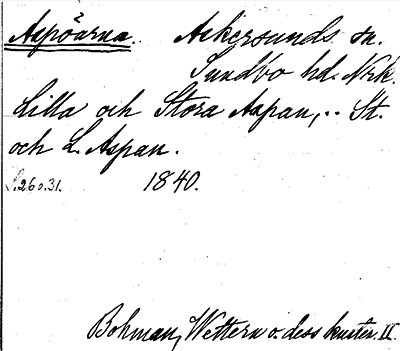 Aspöarna. Askersunds sn.
Sundbo hd. Nrk.
Lilla och Stora Aspan, .. St.
och L. Aspan.
S. 26 o. 31. 1840.
Bohman, Wettern o. dess kuster. II.